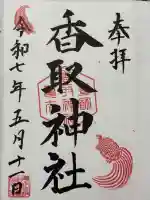 奉拝
香取神社
令和七年五月十一日